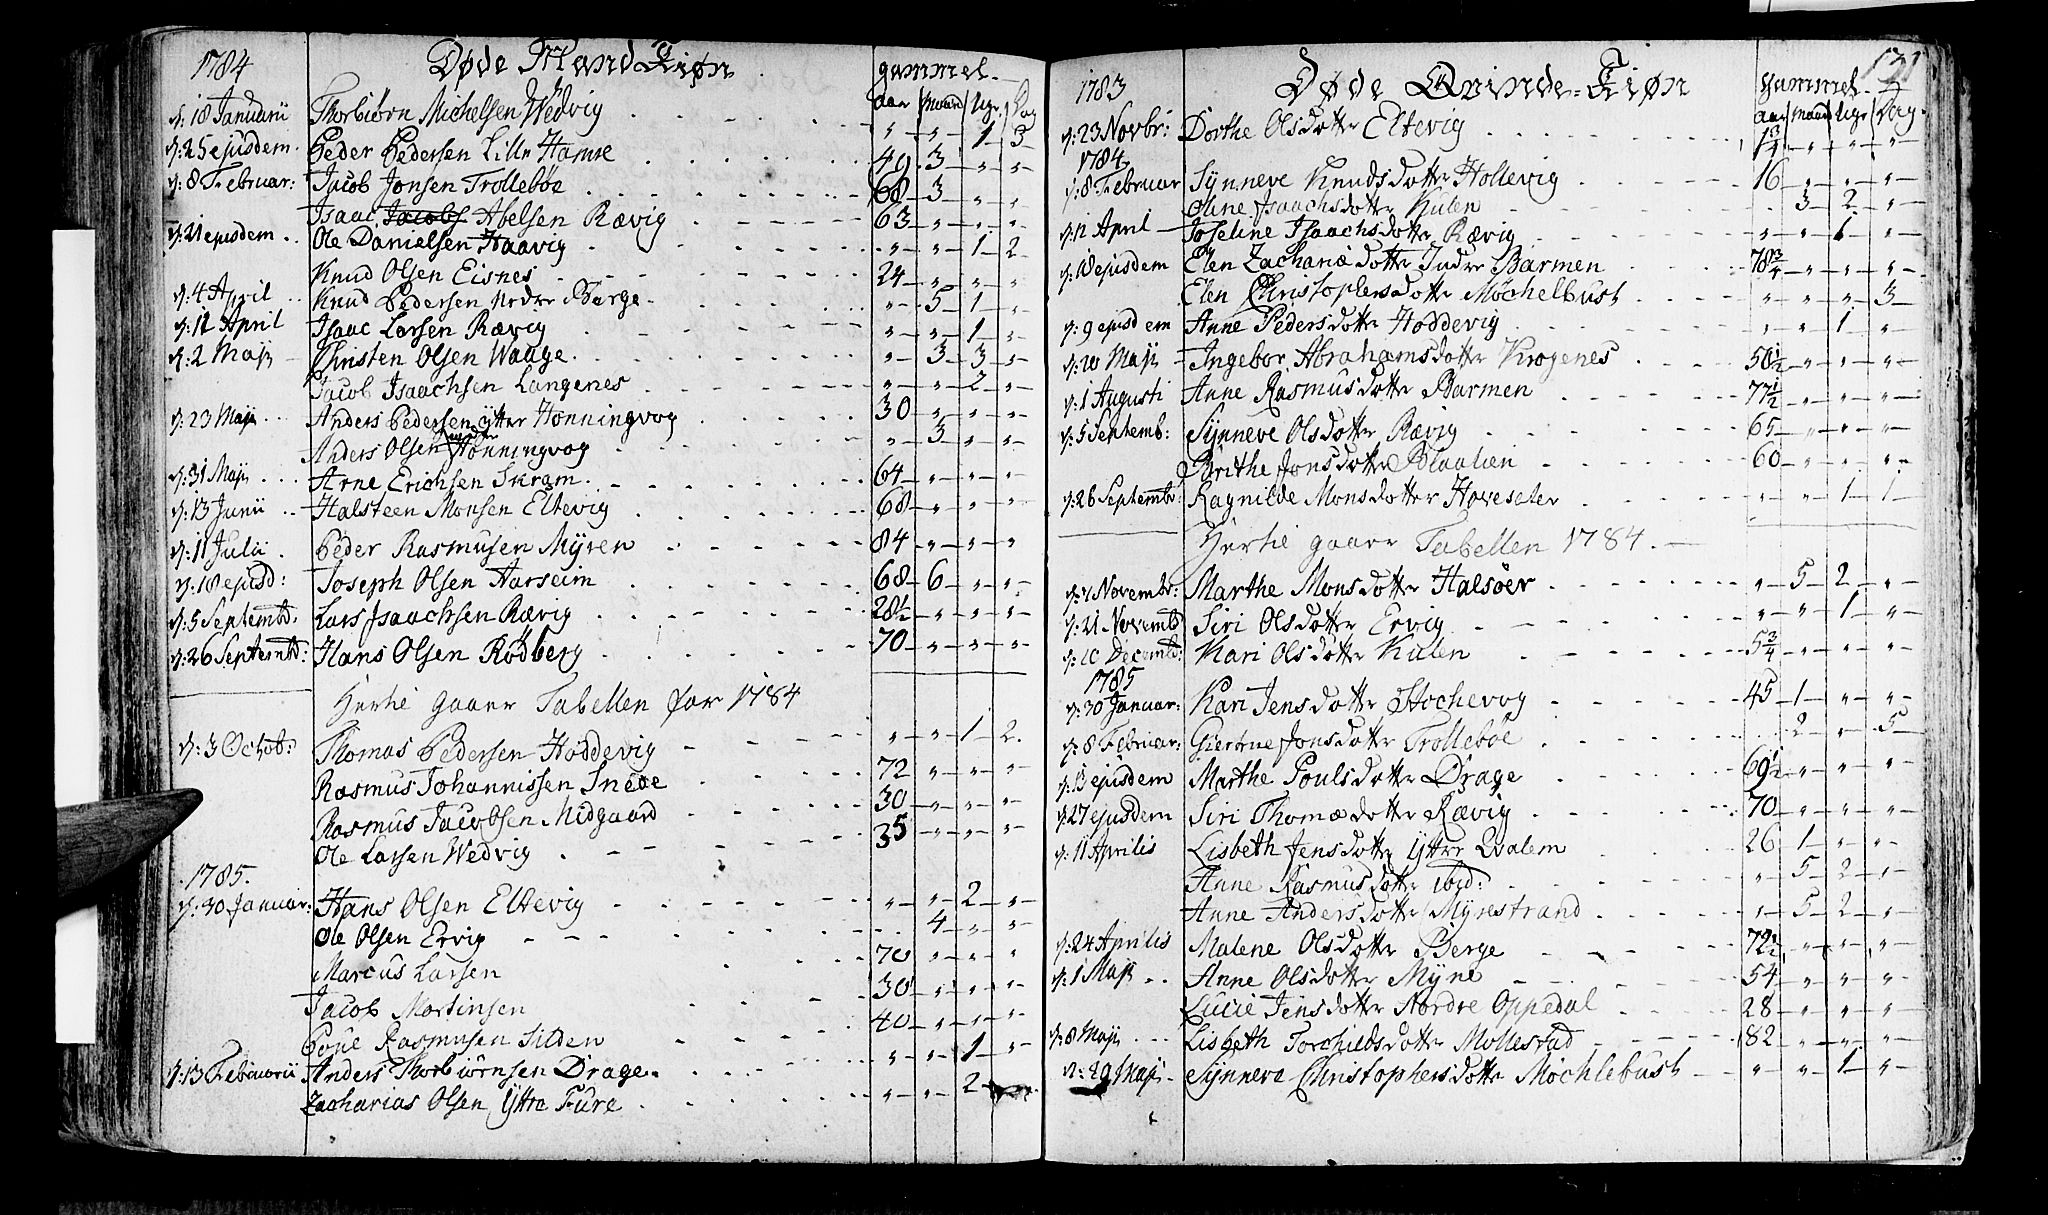 1784 Døde Mand Kiøn gammel.
aar maan Uge Dag
d: 18 Januarii Thorbiörn Michelsen Wedvig „ „ 1 3
d: 25 ejusdem Peder Pedersen Lille Hamre 49 3 „ „
d: 8 Februar: Jacob Jonsen Trolleböe 68 3 „ „
Isaac Jacobs Abelsen Rævig 63 „ „ „
d: 21 ejusdem Ole Danielsen Haavig „ „ 1 2
Knud Olsen Eisnes 24 „ „ „
d: 4 April Knud Pedersen Nedre Berge „ 5 1 „
d: 12 April Isaac Larsen Rævig „ „ 1 „
d: 2 Maji Christen Olsen Waage „ 3 3 „
Jacob Isaachsen Langenes „ „ 2 „
d: 23 Maji Anders Pedersen ytter Honningvog 30 „ „ „
Anders Olsen Honningvog „ 3 „ „
d: 31 Maji Arne Erichsen Skram 64 „ „ „
d: 13 Junii Halsteen Monsen Eltevig 68 „ „ „
d: 11 Julii Peder Rasmusen Myren 84 „ „ „
d: 18 ejusd: Joseph Olsen Aarseim 68 6 „ „
d: 5 Septembr: Lars Isaachsen Rævig 28½ „ „ „
d: 26 Septembr: Hans Olsen Rödberg 70 „ „ „
Hertil gaaer Tabellen for 1784
d: 3 Octob: Thomas Pedersen Hoddevig „ „ 1 2
Rasmus Johannissen Snede 72 „ „ „
Rasmus Jacobsen Midgaard 30 „ „ „
Ole Larsen Wedvig 35 „ „ „
1785.
d: 30 Januar: Hans Olsen Eltevig „ „ 2 „
Ole Olsen Ervig „ 4 „ „
Marcus Larsen 70 „ „ „
Jacob Mortinsen 30 „ „ „
Poul Rasmusen Silden 40 „ „ „
d: 13 Februarii Anders Thorbiörnsen Drage „ „ 1 „
Zacharias Olsen Yttre Fure „ „ 2
1783 Døde Qvinde-Kiøn gammel
aar maan Uge Dag.
d: 23 Novbr: Dorthe Olsdotter Eltevig 1¾ „ „ „
1784
d: 8 Februar Synneve Knudsdotter Hollevig 16 „ „ „
Oline Isaachsdotter Kulen 3 2 „
d: 12 April Joseline Isaachsdotter Rævig „ „ 1 „
d: 18 ejusdem Elen Zachariædotter Indre Barmen 78¾ „ „ „
Elen Christophersdotter Mochelbust „ „ „ 3
d: 9 ejusdem Anne Pedersdotter Hoddevig „ „ 1 „
d: 20 Maji Ingebor Abrahamsdotter Krogenes 50½ „ „ „
d: 1 Augusti Anne Rasmusdotter Barmen 77½ „ „ „
d: 5 Septemb: Synneve Olsdotter Rævig 65 „ „ „
Brithe Jonsdotter Blaalien 60 „ „ „
d: 26 Septembr: Ragnilde Monsdotter Hoveseter „ „ 1 1
Hertil gaaer Tabellen 1784.
Novembr: Marthe Monsdotter Halsöer „ 5 2 „
d: 21 Novemb Siri Olsdotter Ervig „ „ 1 „
d: 10 Decemb: Kari Olsdotter Kulen 5¾ „ „ „
1785
d: 30 Januar: Kari Jensdotter Stochevog 45 1 „ „
d: 8 Februar: Giertrue Jonsdotter Trolleböe 2 „ 5
d: 13 ejusdem Marthe Poulsdotter Drage 69½ „ „ „
d: 27 ejusdem Siri Thomædotter Rævig 70 „ „ „
d: 11 Aprilis Lisbeth Jensdotter Yttre Qvalem 26 1 „ „
Anne Rasmusdotter ibid: „ 5 2 „
Anne Andersdotter Myrestrand „ 5 2 „
d: 24 Aprilis Malene Olsdotter Berge 72½ „ „ „
d: 1 Maji Anne Olsdotter Myne 54 „ „ „
Lucie Jensdotter Nordre Oppedal 28 „ „ „
d: 8 Maji Lisbeth Torchildsdotter Mollestad 82 „ „ „
d: 29 Maji Synneve Christophersdotter Mochlebust „ „ 1 „